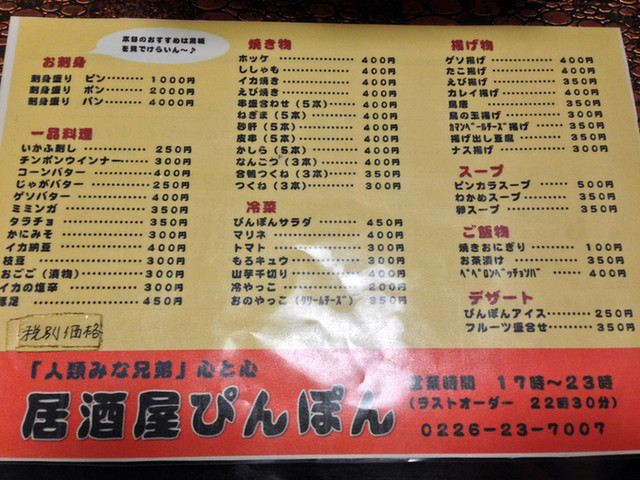 本日のおすすめは黒板
を見てけらいん～♪
お刺身
刺身盛り ピン……… 1000円
刺身盛り ポン……… 2000円
刺身盛り パン……… 4000円
一品料理
いかふ刺し………… 250円
チンポンウインナー… 300円
コーンバター……… 300円
じゃがバター……… 250円
ゲソバター………… 300円
ミミンガ…………… 350円
タラチョ…………… 350円
かにみそ…………… 300円
イカ納豆…………… 400円
枝豆………………… 300円
おごご(漬物)……… 300円
イカの塩辛………… 300円
豚足………………… 450円
税別価格
焼き物
ホッケ……………… 400円
ししゃも…………… 400円
イカ焼き…………… 400円
えび焼き…………… 400円
串盛合わせ(5本)… 400円
ねぎま(5本)……… 400円
砂肝(5本)………… 400円
皮串(5本)………… 400円
かしら(5本)……… 400円
なんこつ(3本)…… 400円
合鴨つくね(3本)… 350円
つくね(3本)……… 300円
冷菜
ぴんぽんサラダ…… 450円
マリネ……………… 400円
トマト……………… 300円
もろキュウ………… 300円
山芋千切り………… 400円
冷やっこ…………… 200円
おのやっこ(クリームチーズ) 350円
揚げ物
ゲソ揚げ…………… 400円
たこ揚げ…………… 400円
えび揚げ…………… 350円
カレイ揚げ………… 400円
鳥唐………………… 350円
鳥の玉揚げ………… 400円
カマンベールチーズ揚げ…… 350円
揚げ出し豆腐……… 350円
ナス揚げ…………… 300円
スープ
ピンカラスープ…… 500円
わかめスープ……… 350円
卵スープ…………… 350円
ご飯物
焼きおにぎり……… 100円
お茶漬け…………… 350円
ペペロンペッチョソバ…… 400円
デザート
ぴんぽんアイス…… 250円
フルーツ盛合せ…… 350円
「人類みな兄弟」心と心
居酒屋ぴんぽん
営業時間 17時～23時
(ラストオーダー 22時30分)
0226-23-7007